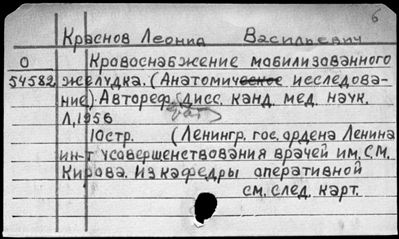 6
Краснов Леонид Васильевич
О Кровоснабжение мобилизованного
54582 желудка. (Анатомическое исследова-
ние) Автореф. дисс. канд. мед. наук.
Л, 1956
10стр. (Ленингр. гос. ордена Ленина
ин-т усовершенствования врачей им. С.М.
Кирова. Из кафедры оперативной
см. след. карт.